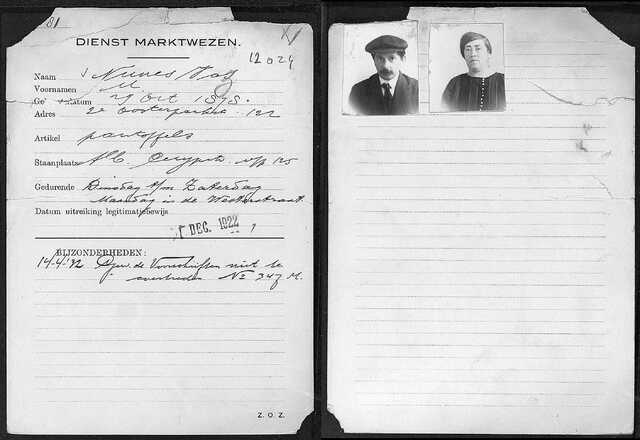 81
DIENST MARKTWEZEN.
12024
Naam Nunes Vaz
Voornamen M
Ge datum 27 Oct 1878.
Adres 2e Oosterparkstr 122
Artikel pantoffels
Staanplaats Alb. Cuypstr. 125
Gedurende Dinsdag t/m Zaterdag
Maandag in de Westerstraat
Datum uitreiking legitimatiebewijs
1 DEC. 1922
BIJZONDERHEDEN:
14-4-'32 de Voorschriften niet te
overtreden No 347 M.
Z. O. Z.